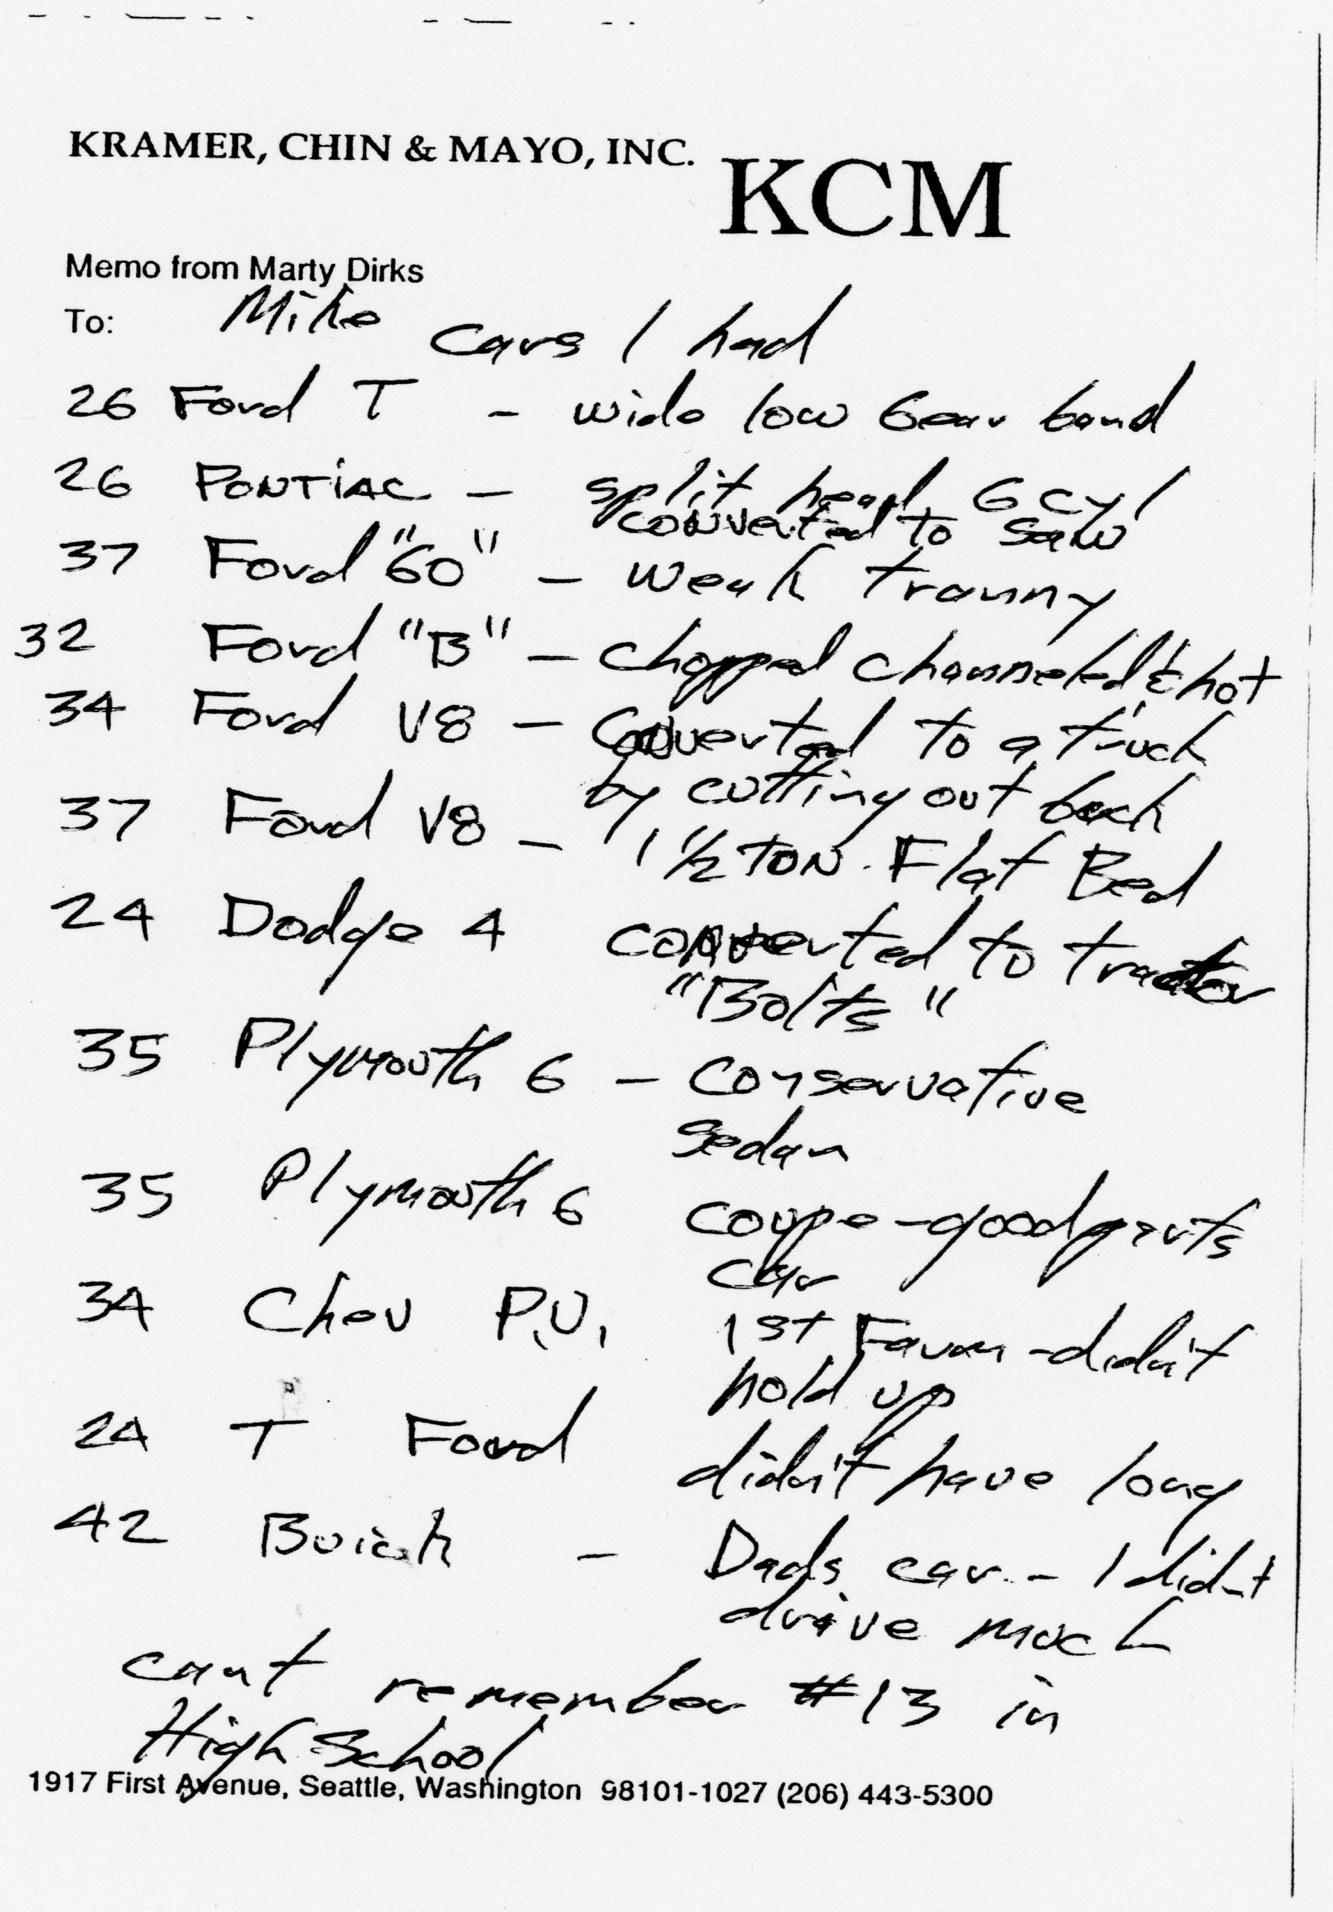 KRAMER, CHIN & MAYO, INC.
KCM
Memo from Marty Dirks
To: Mike
Cars I had
26 Ford T - wide low Gear band
26 PONTIAC - split head 6 cyl
converted to saw
37 Ford "60" - weak tranny
32 Ford "B" - chopped channeled & hot
34 Ford V8 - converted to a truck
by cutting out back
37 Ford V8 - 1 1/2 TON Flat Bed
24 Dodge 4 converted to tractor
"Bolts"
35 Plymouth 6 - conservative
sedan
35 Plymouth 6 coupe - good parts
car
34 Chev P.U. 1st - didn't
hold up
24 T Ford didn't have long
42 Buick - Dads car - I didnt
drive much
cant remember #13 in
High School
1917 First Avenue, Seattle, Washington 98101-1027 (206) 443-5300